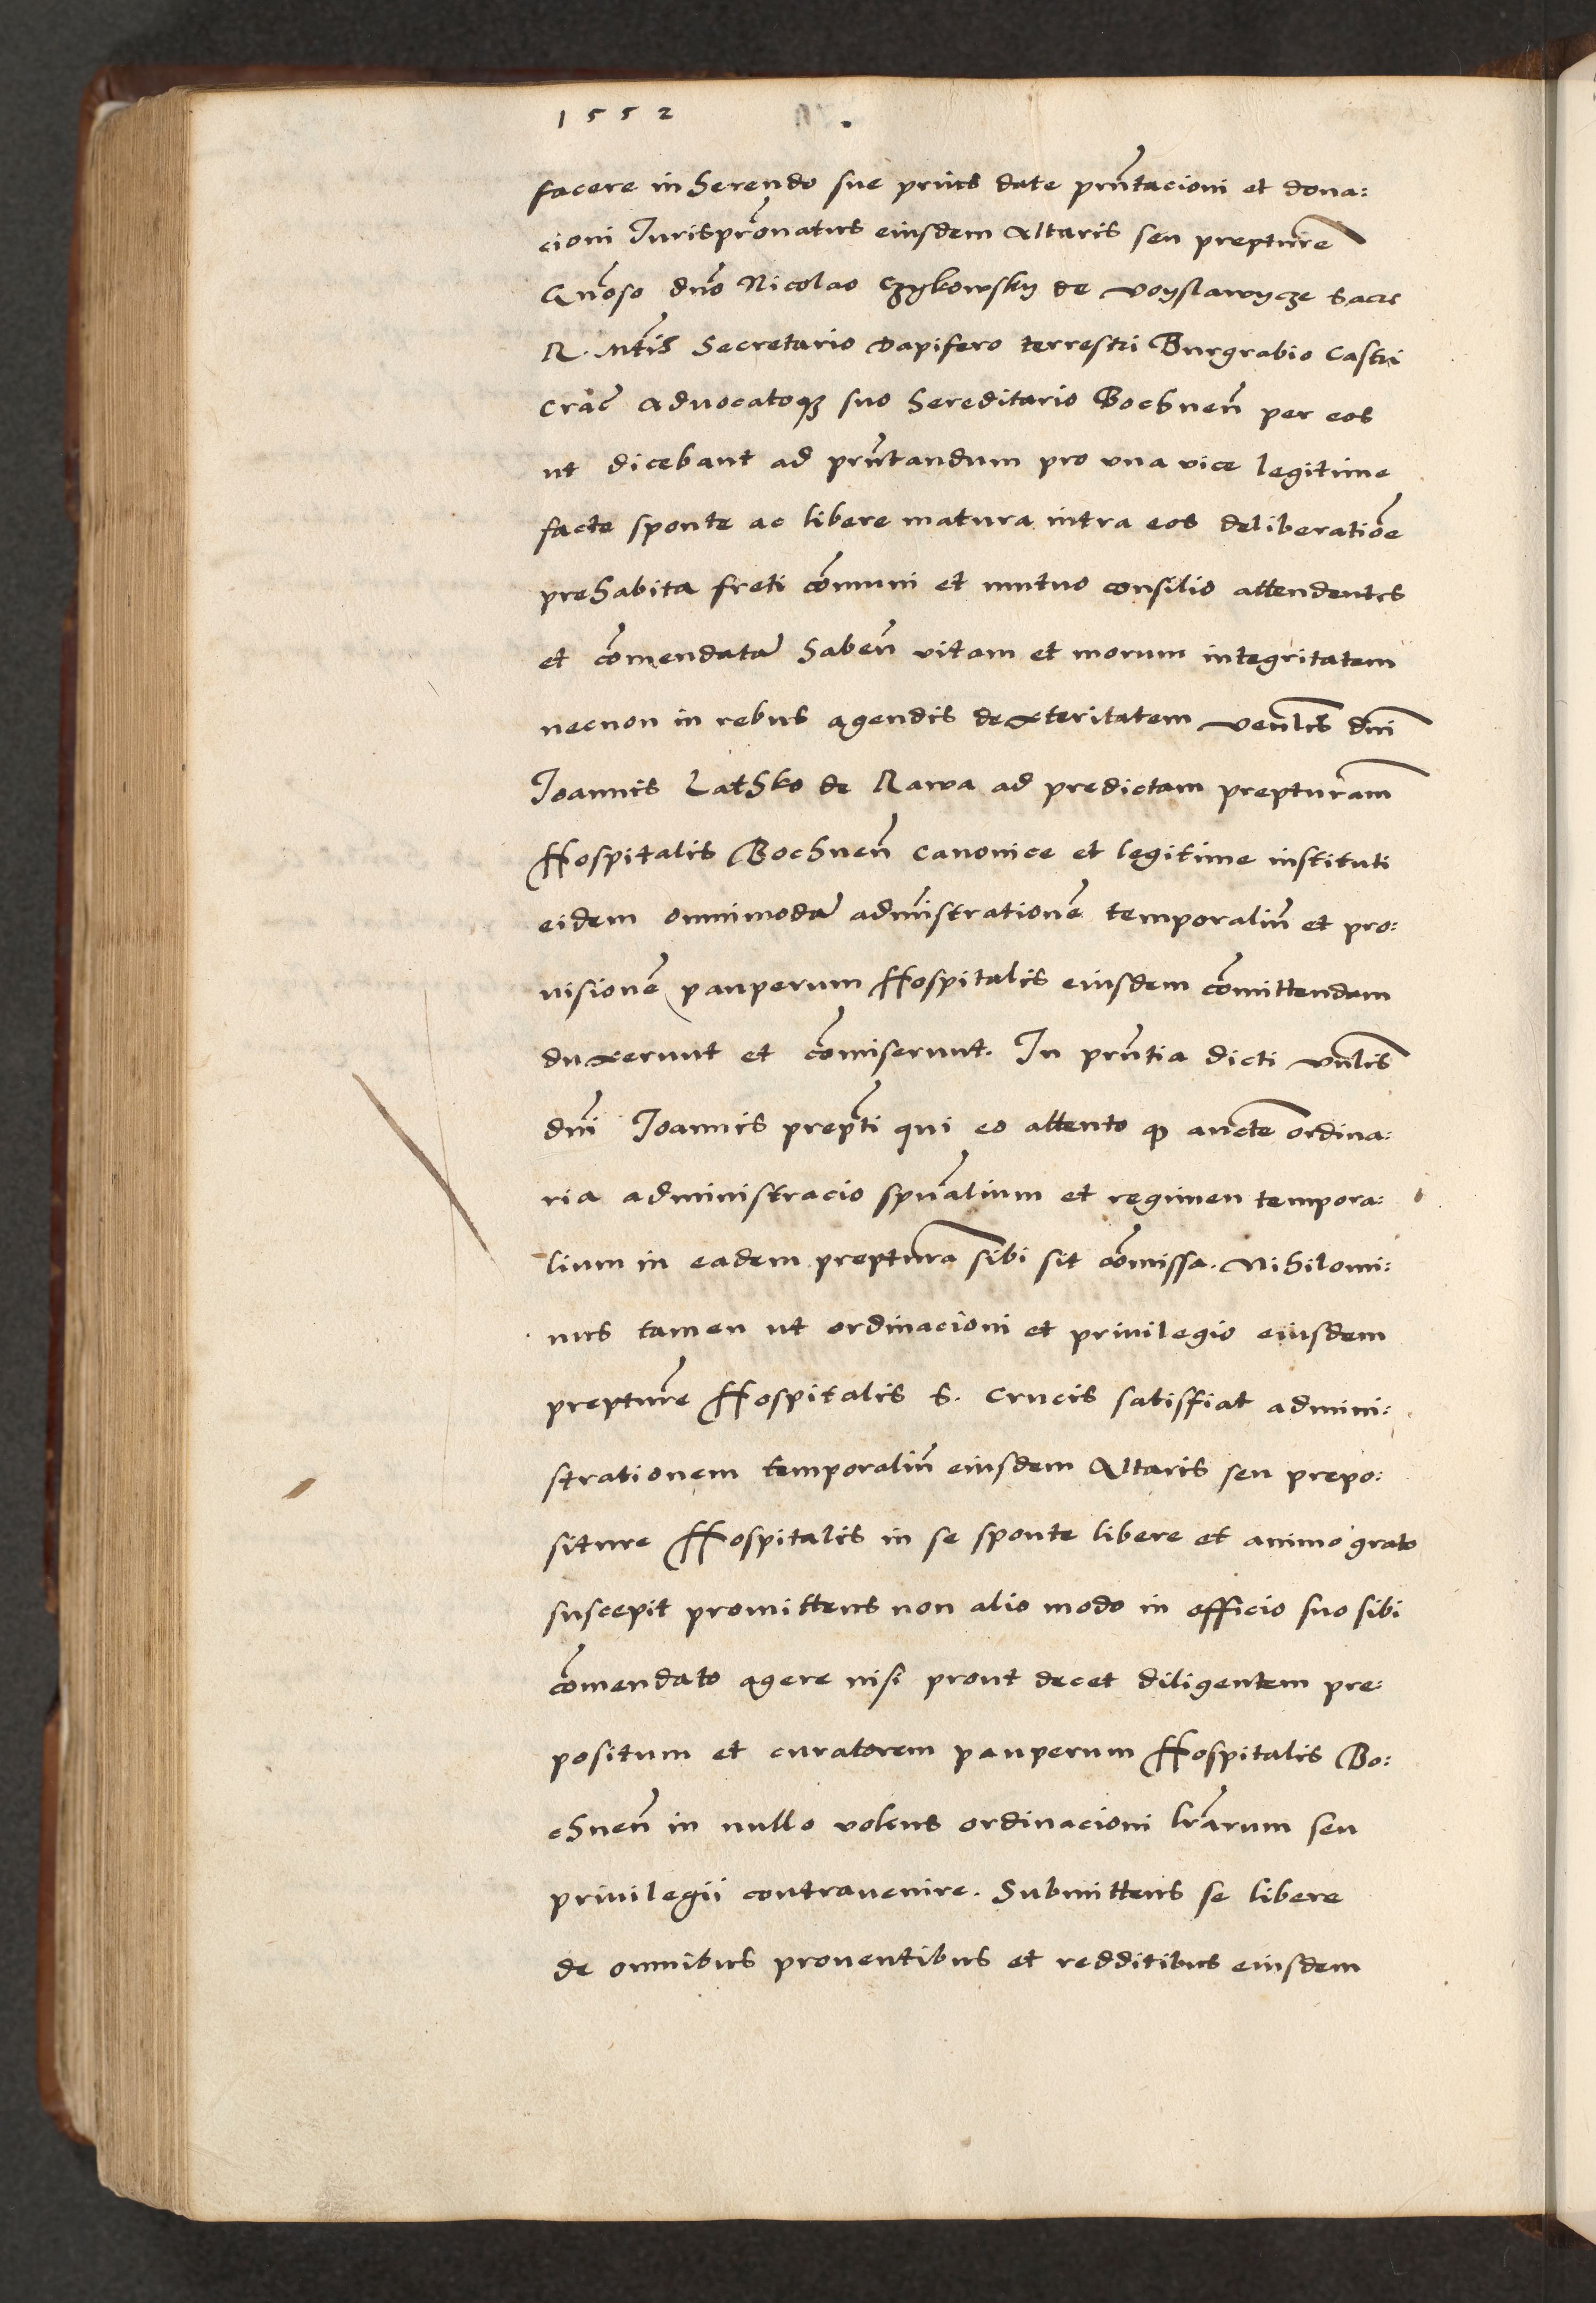 1552
facere inherendo sue prius date pñtacioni et dona:
cioni Jurisprõnatus eiusdem Altaris seu prepture
Gñoso dño Nicolao Czykowsky de Voyslawycze Sacre
R. Mtis Secretario Dapifero terrestri Burgrabio Castri
Crac̃ Aduocatoqȝ suo hereditario Bochneñ per eos
ut dicebant ad pñtandum pro vna vice legitime
facte sponte ac libere matura intra eos deliberatiõe
prehabita freti cõmuni et mutuo consilio attendentes
et cõmendatã habeñ vitam et morum integritatem
necnon in rebus agendis dexteritatem venlis dñi
Joannis Lathsko de Rawa ad predictam prepturam
Hospitalis Bochneñ canonice et legitime instituti
eidem omnimodã admĩstrationẽ temporaliũ et pro:
uisionẽ pauperum Hospitalis eiusdem cõmittendam
duxerunt et cõmiserunt. In pñtia dicti vnlis
dñi Joannis prepti qui eo attento ꝙ aucte ordina:
ria administracio spũalium et regimen tempora:
lium in eadem preptura sibi sit cõmissa. Nihilomi:
nus tamen ut ordinacioni et priuilegio eiusdem
prepture Hospitalis S. Crucis satisfiat admini:
strationem temporaliũ eiusdem Altaris seu prepo:
siture Hospitalis in se sponte libere et animo grato
suscepit promittens non alio modo in officio suo sibi
cõmendato agere nisi prout decet diligentem pre:
positum et curatorem pauperum Hospitalis Bo:
chneñ in nullo volens ordinacioni lrãrum seu
priuilegii contrauenire. Submittens se libere
de omnibus prouentibus et redditibus eiusdem